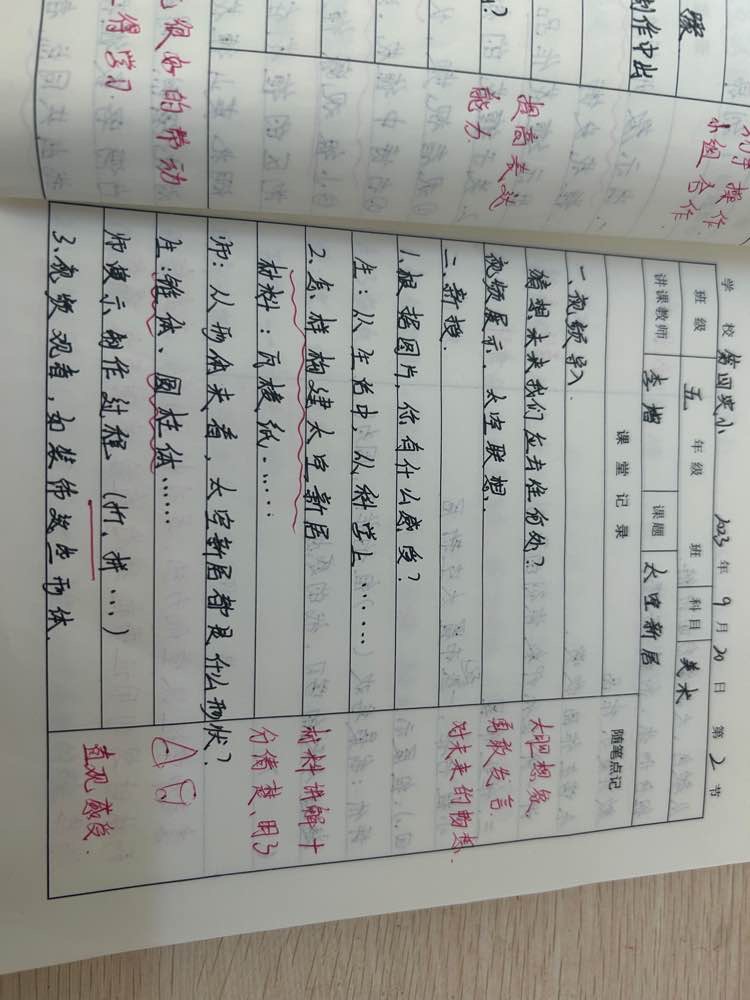 学校 第四实小 2023年9月20日 第2节
班级 五年级 班 科目 美术
讲课教师 李增 课题 太空新居
课堂记录 随笔点记
一、视频导入.
猜想未来我们应去往何处? 大胆想象,
视频展示. 太空联想. 勇敢发言.
二、新授. 对未来的畅想.
1.根据图片,你有什么感受?
生:从生活中,从科学上……
2.怎样构建太空新居 材料讲解十
材料:瓦楞纸…… 分清楚、用了
师:从形体来看,太空新居都是什么形状?
生:锥体、圆柱体……
师演示制作过程(折、拼…) 直观感受.
3.视频观看,如装饰这些形体.
骤
制作中出
?
操作
小组合作
提高表现
能力
很好的带动
得学习.